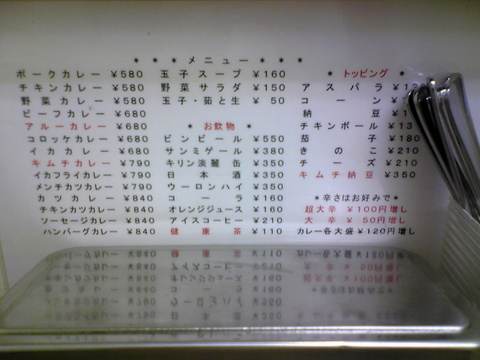 ＊＊＊メニュー＊＊＊
ポークカレー ¥580
チキンカレー ¥580
野菜カレー ¥580
ビーフカレー ¥680
アルーカレー ¥680
コロッケカレー ¥680
イカカレー ¥680
キムチカレー ¥790
イカフライカレー ¥790
メンチカツカレー ¥790
カツカレー ¥840
チキンカツカレー ¥840
ソーセージカレー ¥840
ハンバーグカレー ¥840
玉子スープ ¥160
野菜サラダ ¥150
玉子・茹と生 ¥50
＊お飲物＊
ビンビール ¥550
サンミゲール ¥380
キリン淡麗缶 ¥350
日本酒 ¥350
ウーロンハイ ¥350
コーラ ¥160
オレンジジュース ¥160
アイスコーヒー ¥210
健康茶 ¥110
＊トッピング＊
アスパラ
コーン
納豆
チキンボール
茄子 ¥180
きのこ ¥210
チーズ ¥210
キムチ納豆 ¥350
＊辛さはお好みで＊
超大辛 ¥100円増し
大辛 ¥50円増し
カレー各大盛 ¥120円増し